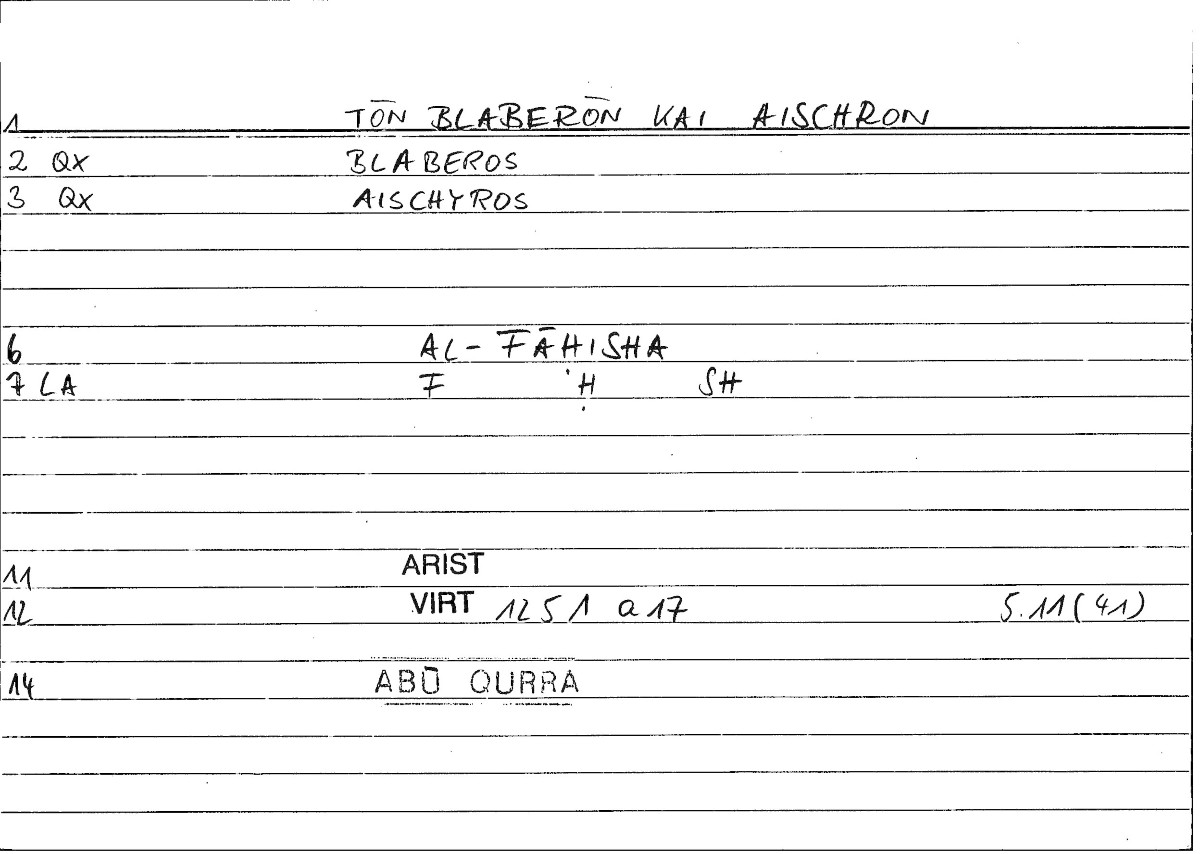 1 TŌN BLABERŌN KAI AISCHRON
2 QX BLABEROS
3 QX AISCHYROS
6 AL-FĀHISHA
7 LA F Ḥ SH
11 ARIST
12 VIRT 1251 a 17 5.11(41)
14 ABŪ QURRA